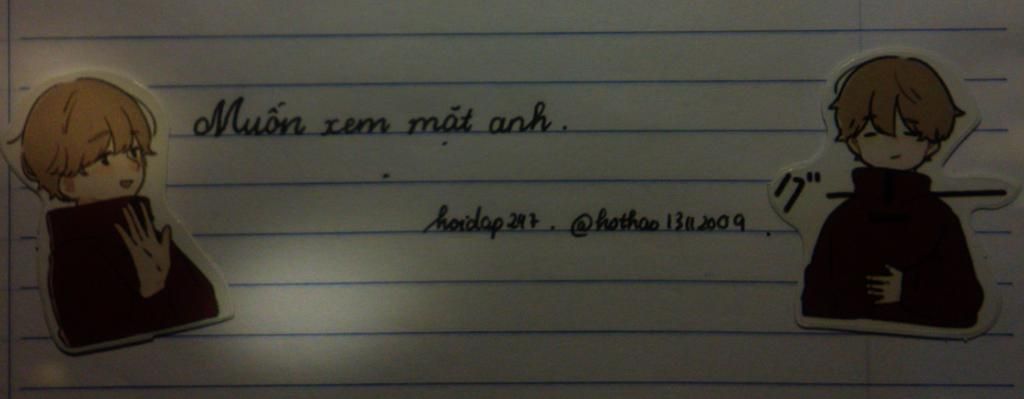 Muốn xem mặt anh.
hoidap247. @hothao13112009.
17"